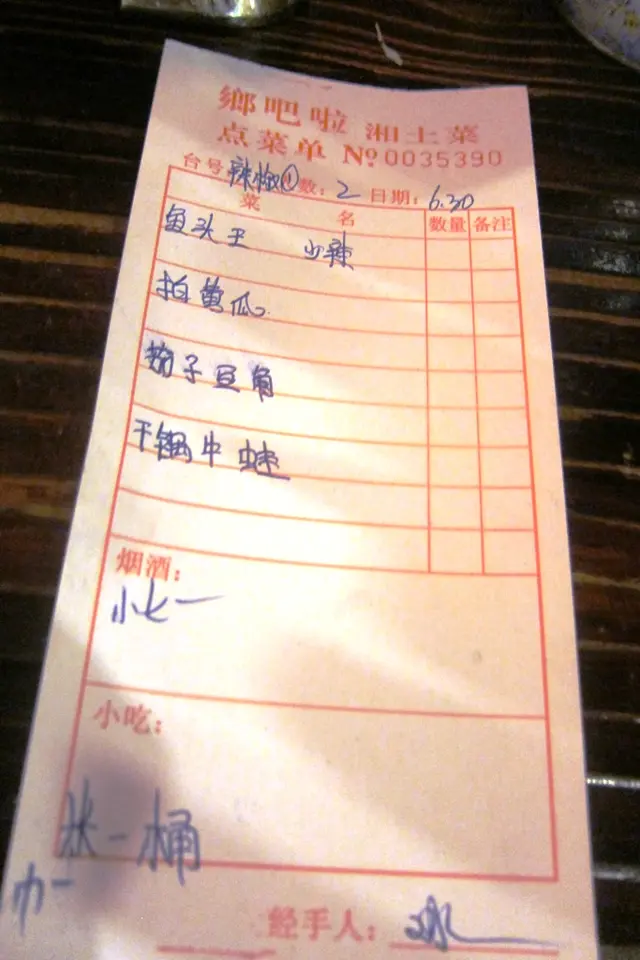 鄉吧啦 湘土菜
点菜单 №0035390
台号 辣椒① 数: 2 日期: 6.30
菜 名 数量 备注
鱼头王 少辣
拍黄瓜
茄子豆角
干锅牛蛙
烟酒:
小七一
小吃:
米一桶
巾一
经手人: 冰